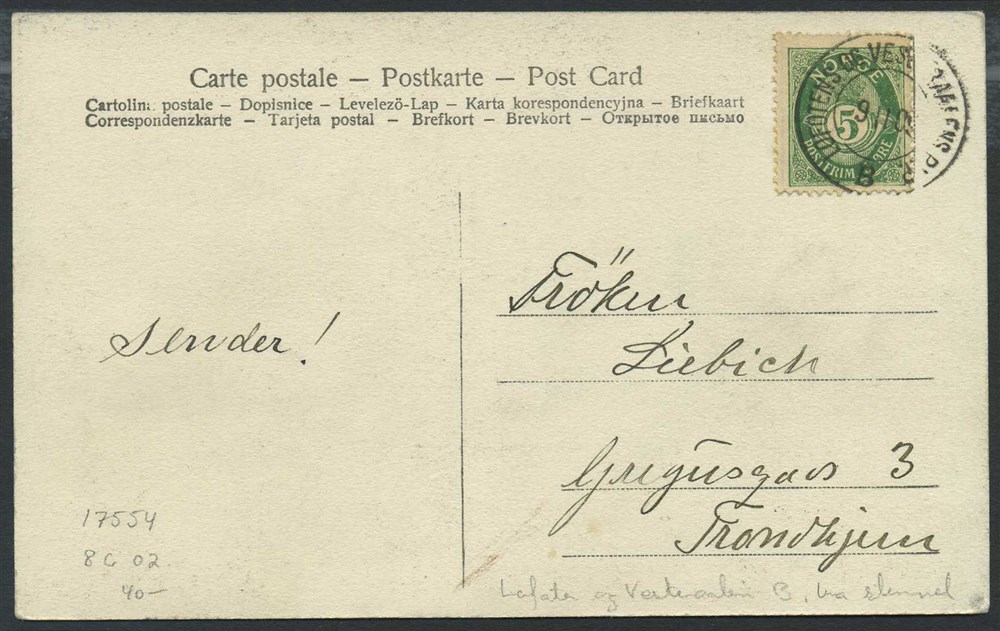 Carte postale – Postkarte – Post Card
Cartolina postale – Dopisnice – Levelező-Lap – Karta korespondencyjna – Briefkaart
Correspondenzkarte – Tarjeta postal – Brefkort – Brevkort – Открытое письмо
NORGE
5
POSTFRIM ØRE
LOFOTENS OG VES RAALENS P.
B
Fröken
Liebich
Sender!
3
Trondhjem
17554
8G 02
40–
Lofoten og Vesteraalen B, bra stempel